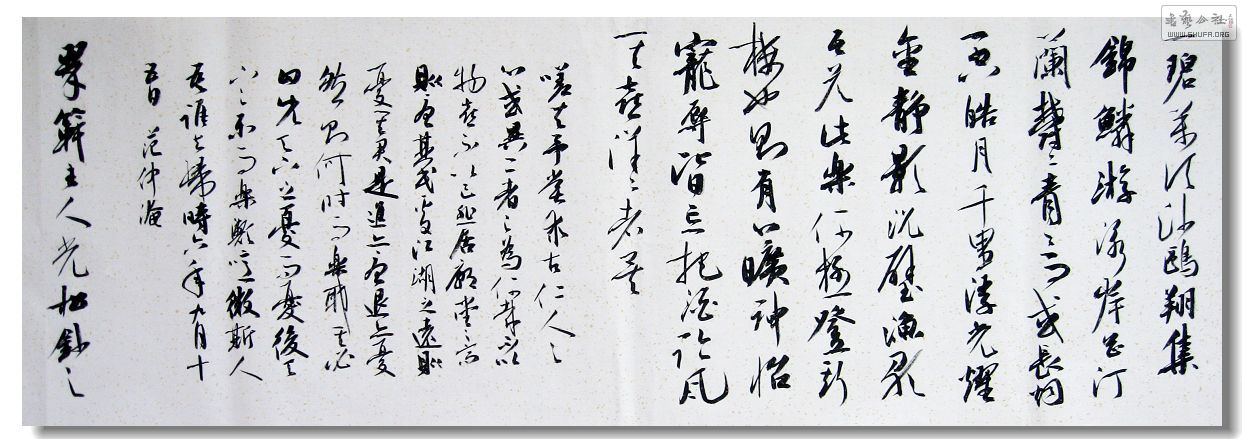 一碧萬頃沙鷗翔集
錦鱗游泳岸芷汀
蘭鬱〻青〻而或長烟
一空皓月千里浮光耀
金靜影沉壁漁歌
互答此樂何極登斯
樓也則有心曠神怡
寵辱皆忘把酒臨風
其喜洋〻者矣
嗟夫予嘗求古仁人之
心或異二者之為何哉不以
物喜不以己悲居廟堂之高
則憂其民處江湖之遠則
憂其君是進亦憂退亦憂
然則何時而樂耶其必
曰先天下之憂而憂後天
下之樂而樂歟噫微斯人
吾誰與歸時六年九月十
五日 范仲淹
主人光鈔之
書藝公社
WWW.SHUFA.ORG